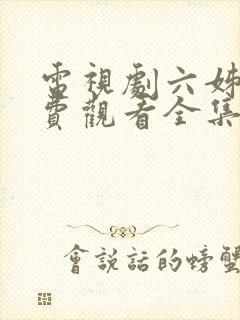 電視劇六姊
費觀看全集
會說話的螃蟹